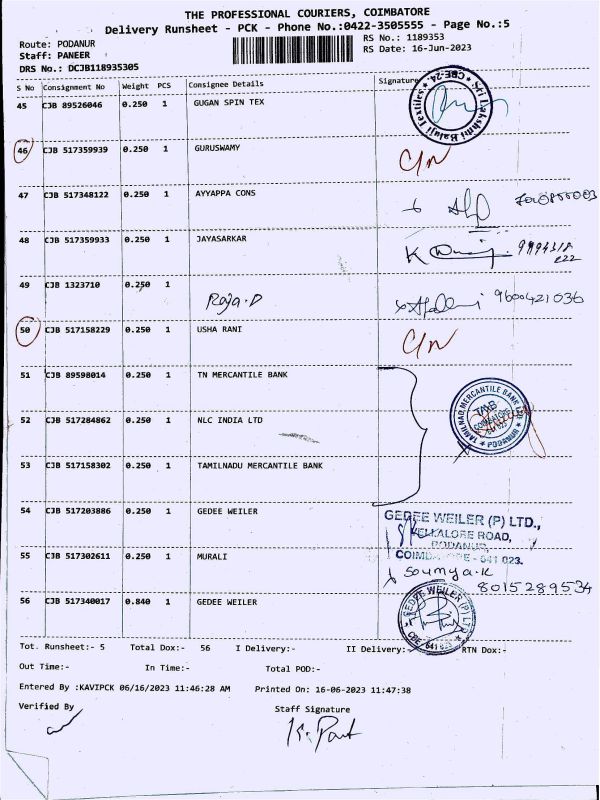 THE PROFESSIONAL COURIERS, COIMBATORE
Delivery Runsheet - PCK - Phone No.:0422-3505555 - Page No.:5
Route: PODANUR
Staff: PANEER
DRS No.: DCJB118935305
RS No.: 1189353
RS Date: 16-Jun-2023
S No Consignment No Weight PCS Consignee Details Signature
45 CJB 89526046 0.250 1 GUGAN SPIN TEX
Sri Lakshmi Balaji Textiles * CBE-24
46 CJB 517359939 0.250 1 GURUSWAMY C/N
47 CJB 517348122 0.250 1 AYYAPPA CONS
48 CJB 517359933 0.250 1 JAYASARKAR
49 CJB 1323710 0.250 1
Raja.D 9600421036
50 CJB 517158229 0.250 1 USHA RANI C/N
51 CJB 89598014 0.250 1 TN MERCANTILE BANK
TAMILNAD MERCANTILE BANK LTD
TMB
COIMBATORE
PODANUR
52 CJB 517284862 0.250 1 NLC INDIA LTD
53 CJB 517158302 0.250 1 TAMILNADU MERCANTILE BANK
54 CJB 517203886 0.250 1 GEDEE WEILER
GEDEE WEILER (P) LTD.,
VELLALORE ROAD,
PODANUR,
COIMBATORE - 641 023.
55 CJB 517302611 0.250 1 MURALI
Soumya.K
8015289534
56 CJB 517340017 0.840 1 GEDEE WEILER
GEDEE WEILER (P) LTD
CBE 641 023
Tot. Runsheet:- 5 Total Dox:- 56 I Delivery:- II Delivery:- RTN Dox:-
Out Time:- In Time:- Total POD:-
Entered By :KAVIPCK 06/16/2023 11:46:28 AM Printed On: 16-06-2023 11:47:38
Verified By Staff Signature